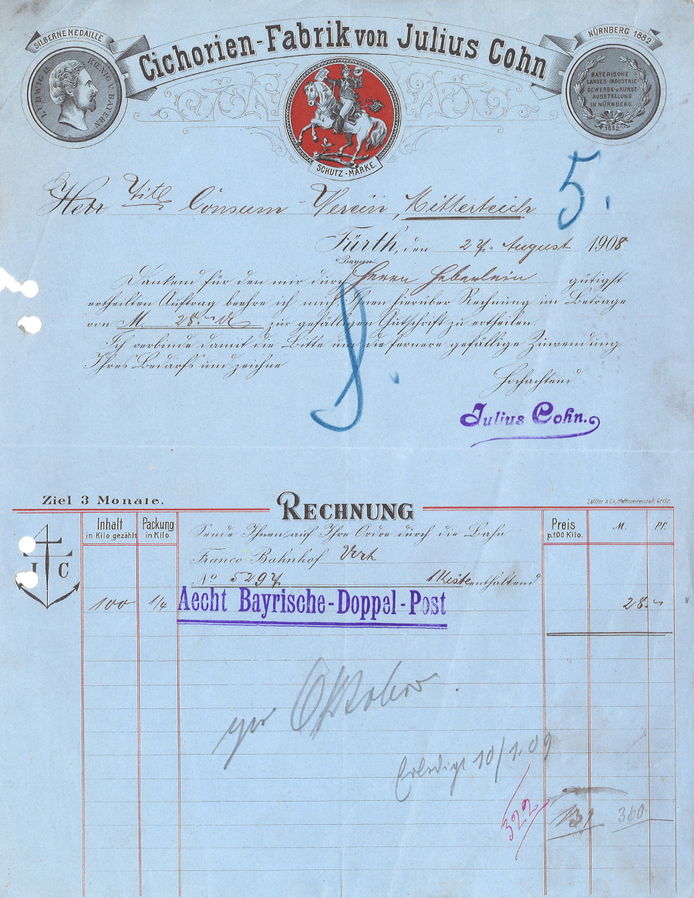 SILBERNE MEDAILLE
Cichorien-Fabrik von Julius Cohn
NÜRNBERG 1882
LUDWIG II KOENIG V. BAYERN
BAYERISCHE
LANDES-INDUSTRIE
GEWERBE u. KUNST
AUSSTELLUNG
IN NÜRNBERG
1882
SCHUTZ-MARKE
Herr Titl Consum-Verein, Mitterteich
5.
Fürth, den 24. August 1908
Bayern
Dankend für den mir durch Herrn Heberlein gütigst
ertheilten Auftrag beehre ich mich Ihnen hierüber Rechnung im Betrage
von M. 28.- zur gefälligen Gutschrift zu ertheilen.
Ich verbinde damit die Bitte um die fernere gefällige Zuwendung
Ihres Bedarfs und zeichne
Hochachtend
Julius Cohn.
Ziel 3 Monate.
RECHNUNG
Inhalt
in Kilo gezählt
Packung
in Kilo.
Sende Ihnen auf Ihre Ordre durch die Bahn
Preis
p. 100 Kilo.
M.
Pf.
Franco Bahnhof
J C
No 5294 1 Kiste enthaltend
100 1/4 Aecht Bayrische-Doppel-Post 28.-
per Oktober.
Erledigt 10/1.09
322
360